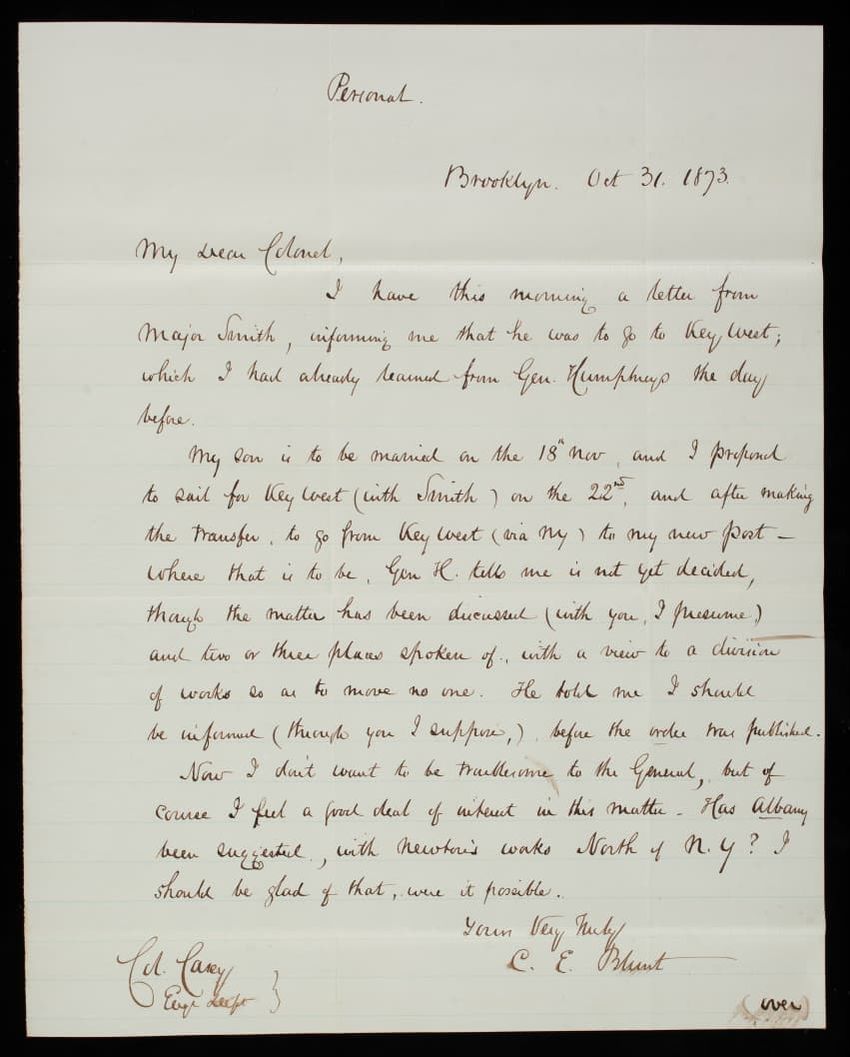 Personal.
Brooklyn. Oct 31. 1873.
My dear Colonel,
I have this morning a letter from
Major Smith, informing me that he was to go to Key West;
which I had already learned from Gen. Humphreys the day
before.
My son is to be married on the 18th Nov, and I propose
to sail for Key West (with Smith) on the 22nd, and after making
the transfer, to go from Key West (via NY) to my new post –
where that is to be, Gen H. tells me is not yet decided,
though the matter has been discussed (with you, I presume,)
and two or three places spoken of, with a view to a division
of works so as to move no one. He told me I should
be informed (through you I suppose,), before the order was published.
Now I don't want to be troublesome to the General, but of
course I feel a good deal of interest in this matter – Has Albany
been suggested, with Newton's works North of N.Y? I
should be glad of that, were it possible.
Yours Very Truly
C. E. Blunt
Col. Casey
Engr Dept }
(over)